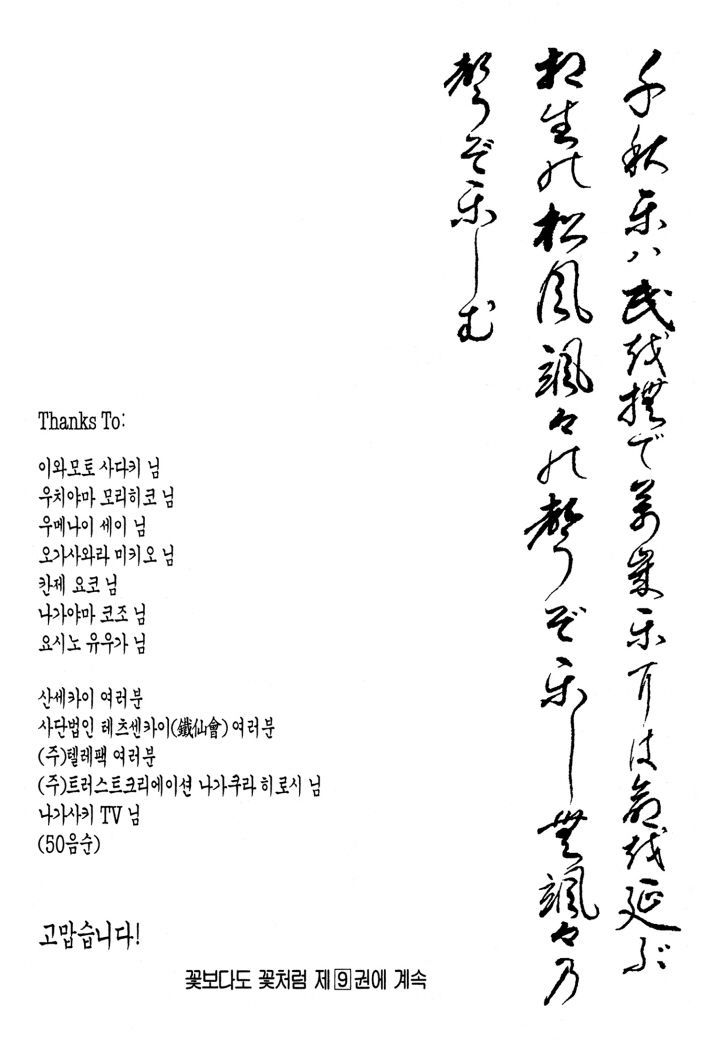 千秋楽ハ民を撫で萬歳楽には命を延ぶ
相生の松風颯々の聲ぞ楽しむ颯々乃
聲ぞ楽しむ
Thanks To:
이와모토 사다키 님
우치야마 모리히코 님
우메나이 세이 님
오가사와라 미키오 님
칸제 요코 님
나가야마 코조 님
요시노 유우가 님
산세카이 여러분
사단법인 테츠센카이(鐵仙會) 여러분
(주)텔레팩 여러분
(주)트러스트크리에이션 나가쿠라 히로시 님
나가사키 TV 님
(50음순)
고맙습니다!
꽃보다도 꽃처럼 제9권에 계속